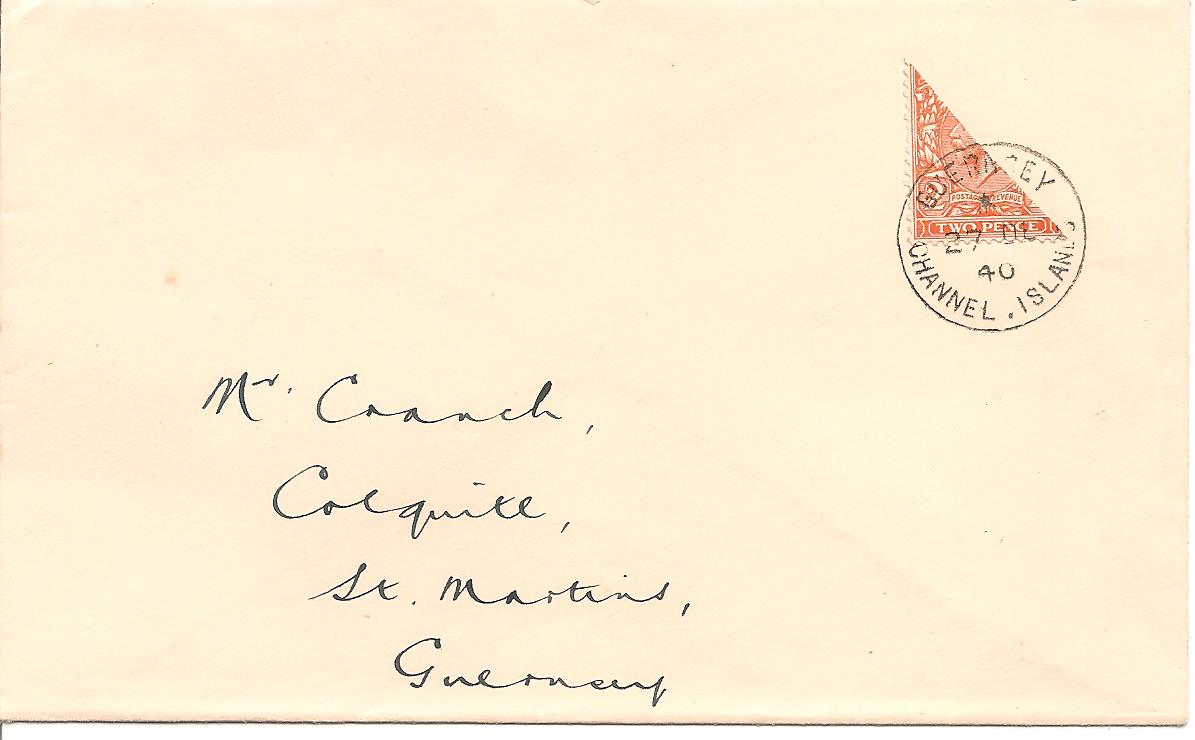 POSTAGE REVENUE
TWO PENCE
GUERNSEY
27 DE
40
CHANNEL ISLANDS
Mr. Cranch,
Colquite,
St. Martins,
Guernsey